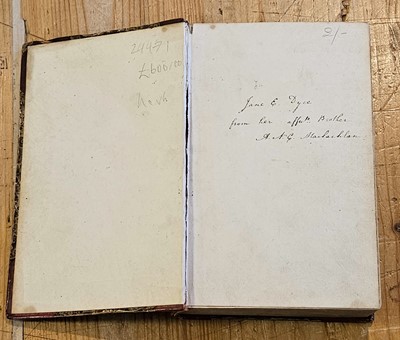 £600.00
2/-
Jane E. Dyce
from her affte Brother
A. N. G. Maclachlan